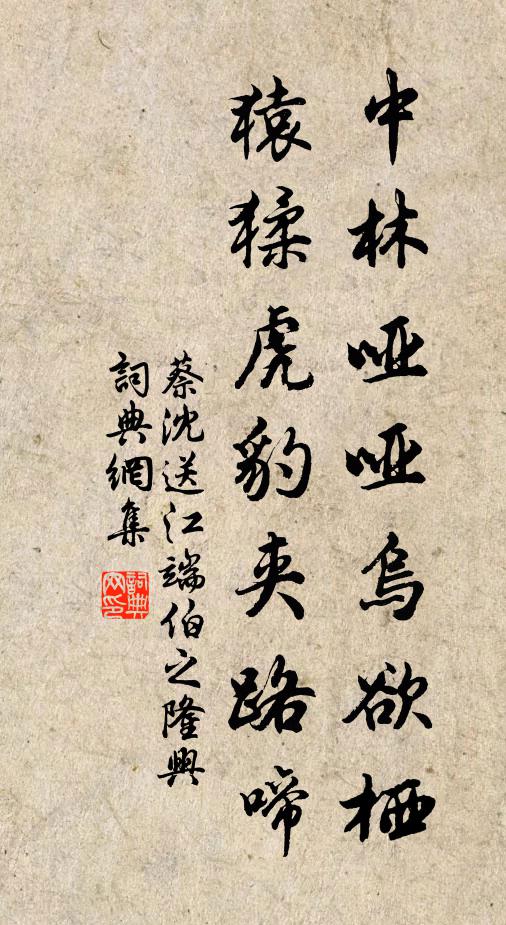 中林啞啞烏欲栖
猿猱虎豹夾路啼
蔡沈送江端伯之隆興
詞典網集
詞典网印